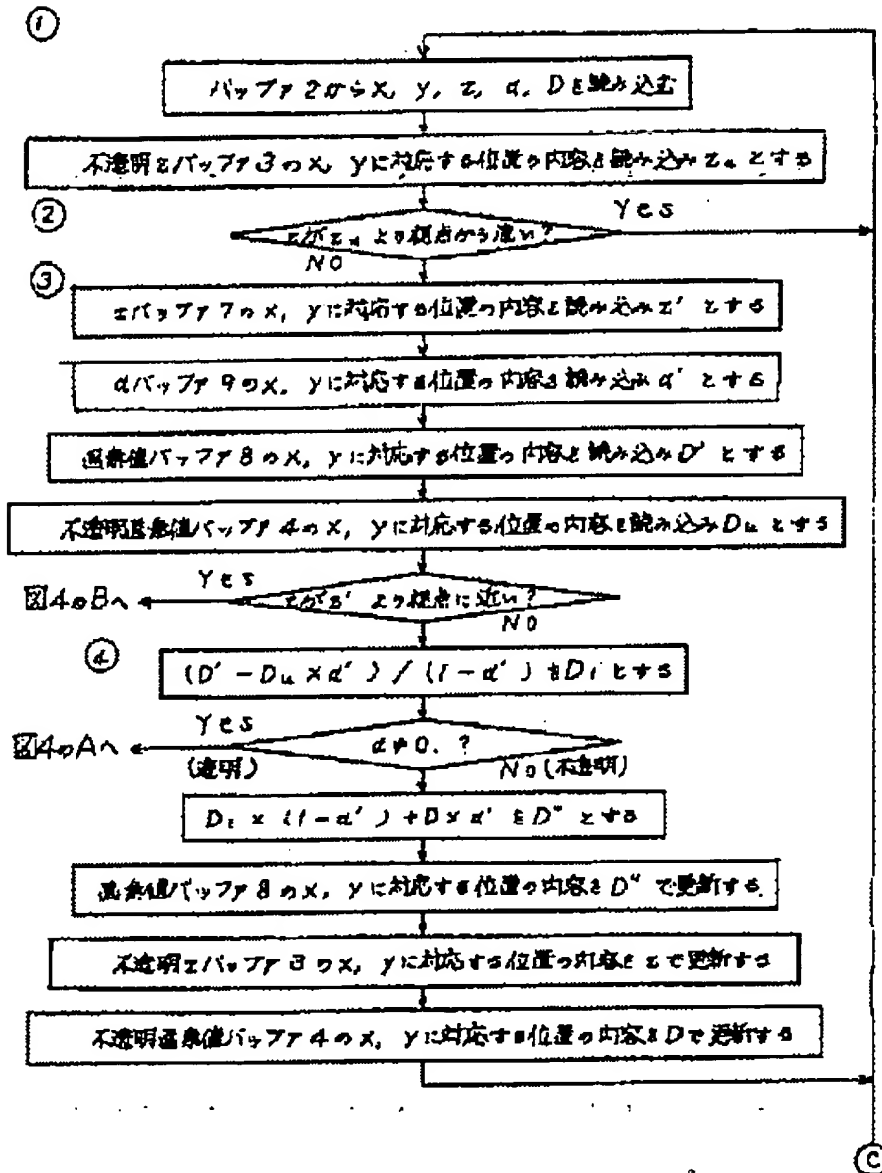 ①
バッファ2からx, y, z, α, Dを読み込む
不透明zバッファ3のx, yに対応する位置の内容を読み込みzuとする
②
Yes
zがzuより視点から遠い?
NO
③
zバッファ7のx, yに対応する位置の内容を読み込みz'とする
αバッファ9のx, yに対応する位置の内容を読み込みα'とする
画素値バッファ8のx, yに対応する位置の内容を読み込みD'とする
不透明画素値バッファ4のx, yに対応する位置の内容を読み込みDuとする
Yes
図4のBへ
zがz'より視点に近い?
NO
④
(D'-Du×α')/(1-α')をDiとする
Yes
図4のAへ
α≠0.?
(透明)
No(不透明)
Di×(1-α')+D×α'をD"とする
画素値バッファ8のx, yに対応する位置の内容をD"で更新する
不透明zバッファ3のx, yに対応する位置の内容をzで更新する
不透明画素値バッファ4のx, yに対応する位置の内容をDで更新する
Ⓒ